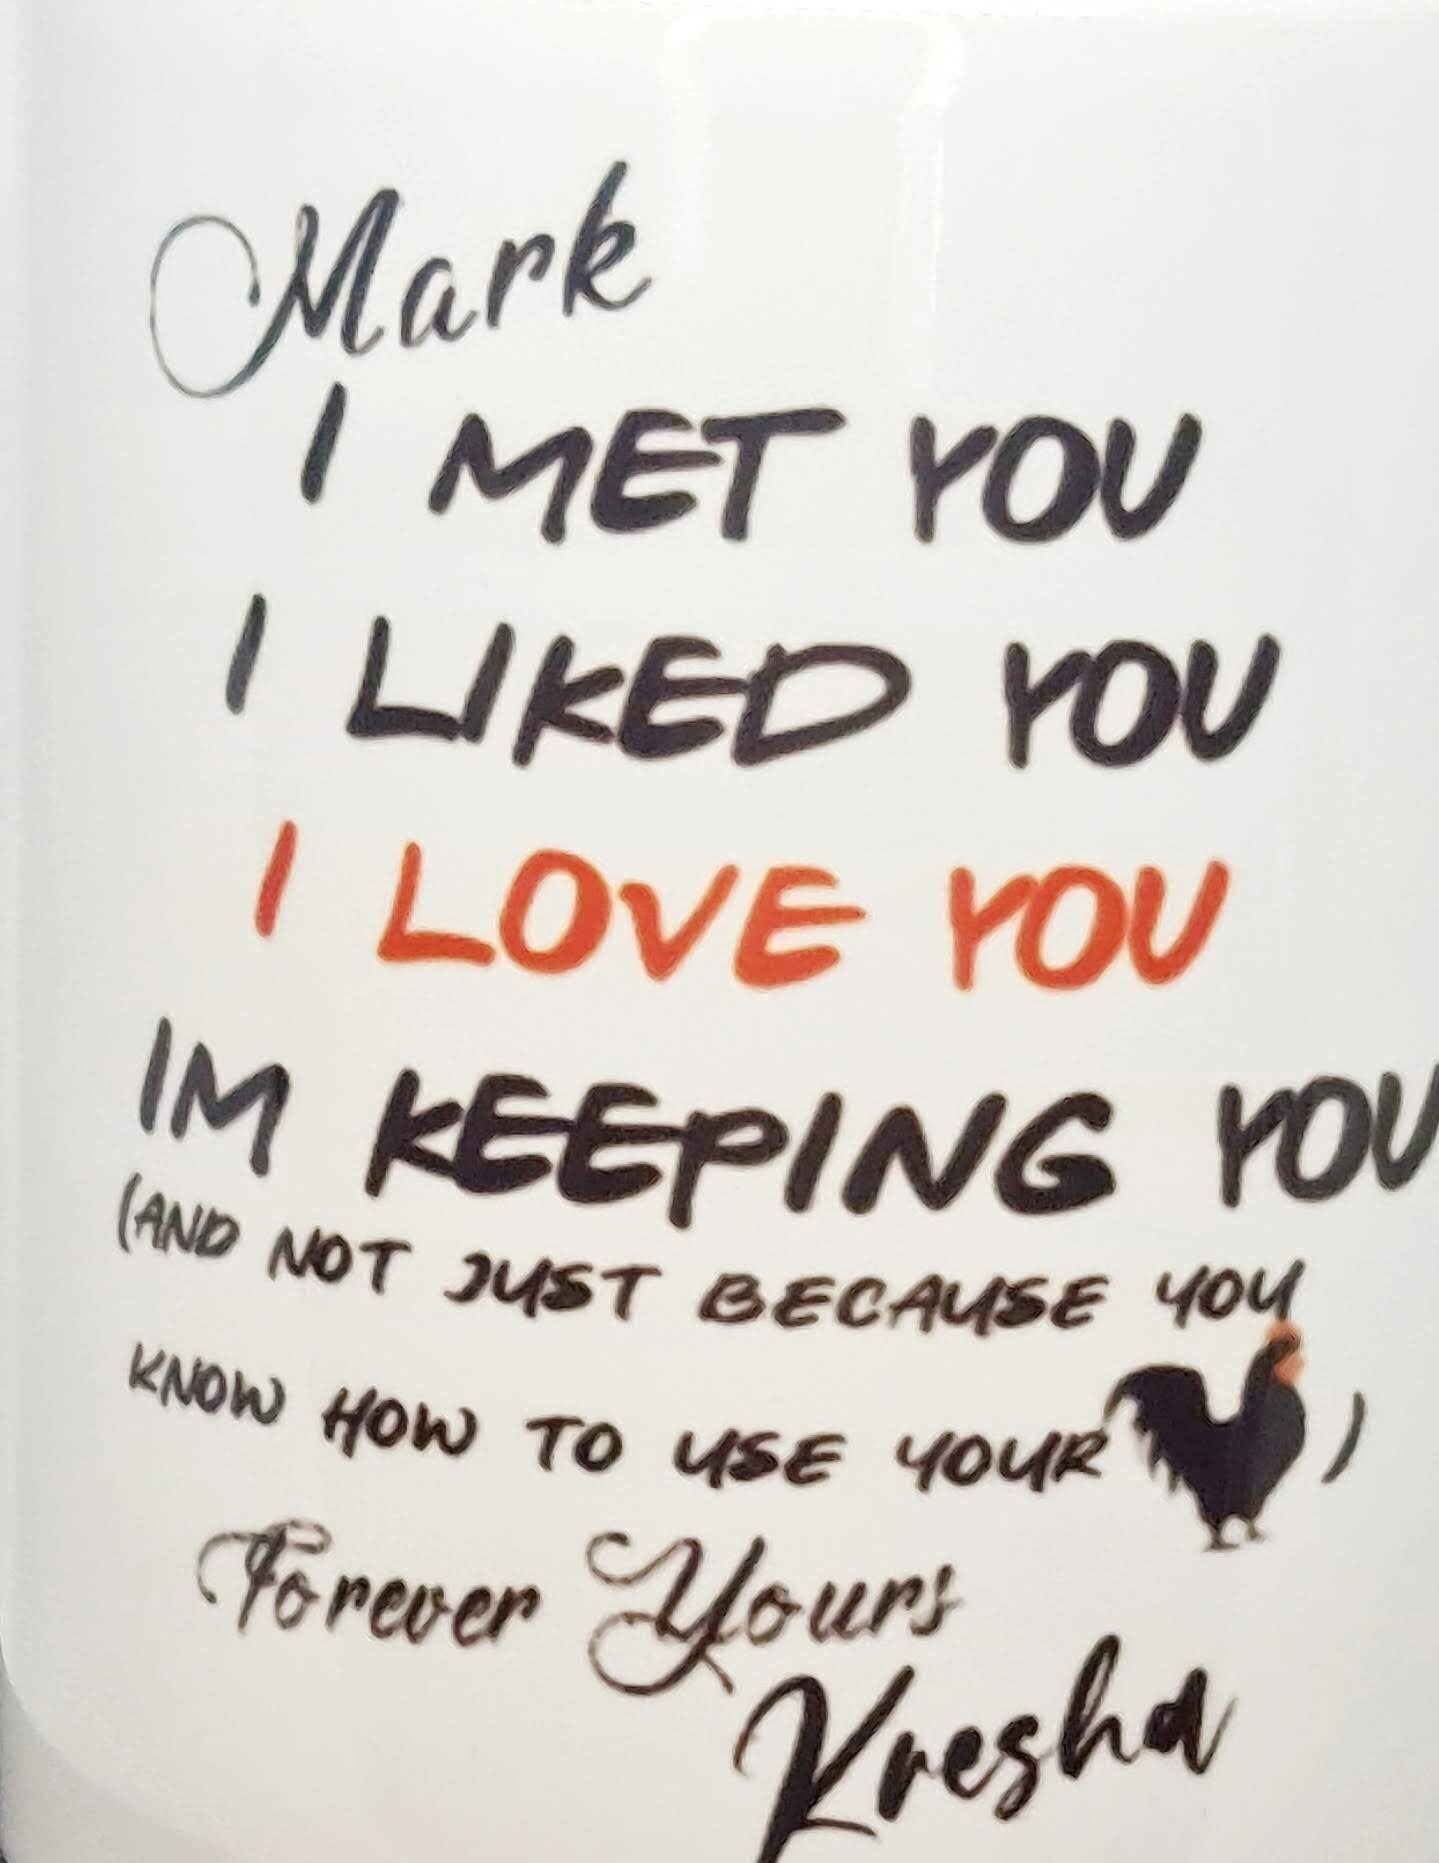 Mark
I MET YOU
I LIKED YOU
I LOVE YOU
IM KEEPING YOU
(AND NOT JUST BECAUSE YOU
KNOW HOW TO USE YOUR )
Forever Yours
Kresha